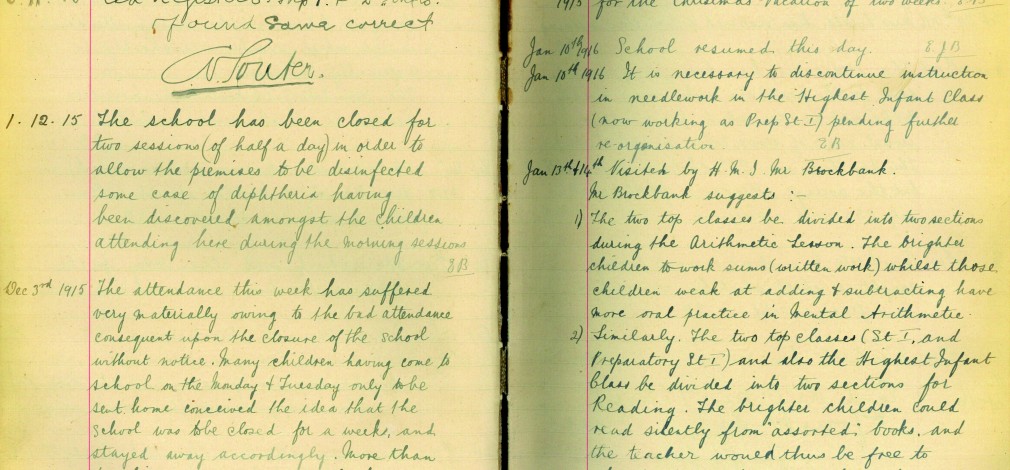 found same correct
1.12.15 The school has been closed for
two sessions (of half a day) in order to
allow the premises to be disinfected
some case of diphtheria having
been discovered amongst the children
attending here during the morning sessions
EB
Dec 3rd 1915 The attendance this week has suffered
very materially owing to the bad attendance
consequent upon the closure of the school
without notice. Many children having come to
school on the Monday & Tuesday only to be
sent home conceived the idea that the
school was to be closed for a weeks, and
stayed away accordingly. More than
1915 for the Christmas vacation of two weeks. EJB
Jan 10th 1916 School resumed this day. EJB
Jan 10th 1916 It is necessary to discontinue instruction
in needlework in the Highest Infant Class
(now working as Prep St I) pending further
re-organisation. EB
Jan 13th & 14th Visited by H.M.I. Mr Brockbank.
Mr Brockbank suggests :-
1) The two top classes be divided into two sections
during the Arithmetic Lesson. The brighter
children to work sums (written work) whilst those
children weak at adding & subtracting have
more oral practice in Mental Arithmetic.
2) Similarly. The two top classes (St I, and
Preparatory St I) and also the Highest Infant
Class be divided into two sections for
Reading. The brighter children could
read silently from "assorted" books, and
the teacher would thus be free to